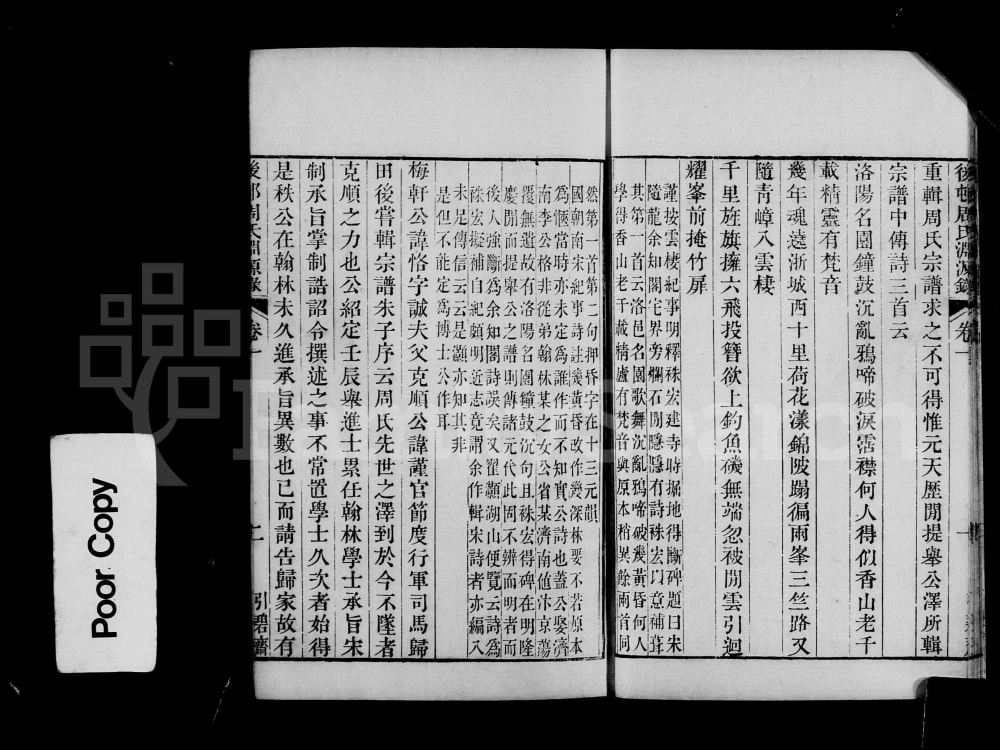 後邨周氏淵源錄 卷一
重輯周氏宗譜求之不可得惟元天歷閒提舉公澤所輯
宗譜中傳詩三首云
洛陽名園鐘鼓沉亂鴉啼破淚霑襟何人得似香山老千
載精靈有梵音
幾年魂遶浙城西十里荷花漾錦陂蹋徧兩峯三竺路又
隨靑嶂入雲棲
千里旌旗擁六飛投簪欲上釣魚磯無端忽被閒雲引迴
耀峯前掩竹扉
謹按雲棲紀事明釋袾宏建寺時掘地得斷碑題曰宋
隨龍余知閣宅界旁爛石閒隱隱有詩袾宏以意補葺
其第一首云洛邑名園歌舞沉亂鴉啼破幾黃昏何人
學得香山老千載精廬有梵音與原本稍異餘兩首同
然第一首第二句押昏字在十三元韻
國朝南宋紀事詩註幾黃昏改作幾深林要不若原本
為愜當時亦未定為誰作而不知實公詩也蓋公娶濟
南李公格非從弟翰林某之女公省某濟南値汴京蕩
覆無遺故有洛陽名園鐘鼓沉句且袾宏得碑在明隆
慶閒而提舉公之譜則傳諸元代此固不辨而明者而
後人強斷為余知閣詩誤矣又翟灝湖山便覽云詩為
袾宏擬補自紀頗明近志竟謂余作輯宋詩者亦編入
未足傳信云云是灝亦知其非
是但不能定為博士公作耳
梅軒公諱恪字誠夫父克順公諱謹官節度行軍司馬歸
田後嘗輯宗譜朱子序云周氏先世之澤到於今不墜者
克順之力也公紹定壬辰舉進士累任翰林學士承旨宋
制承旨掌制誥詔令撰述之事不常置學士久次者始得
是秩公在翰林未久進承旨異數也已而請告歸家故有
後邨周氏淵源錄 卷一 二 引碧齋
Poor Copy